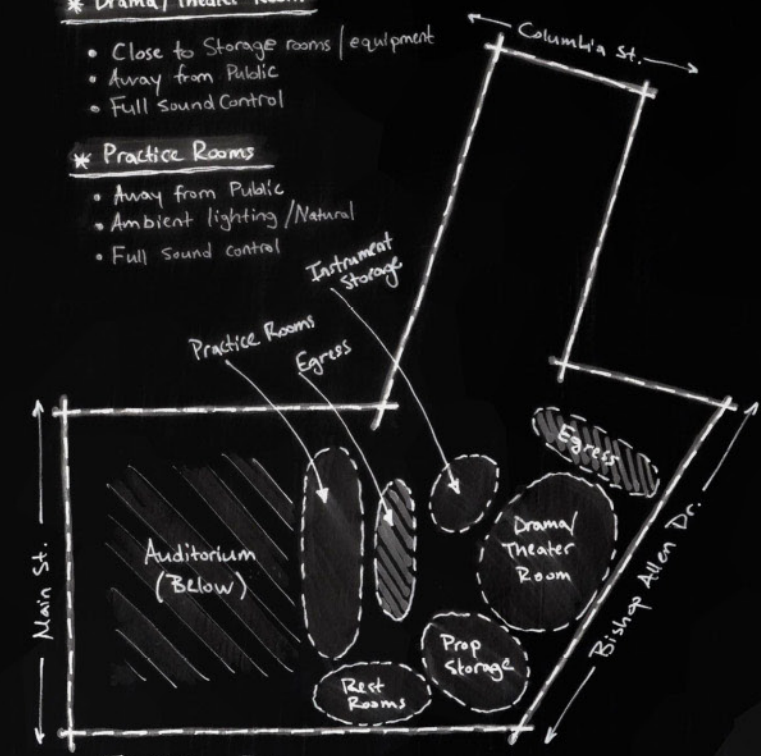 * Drama/Theater Room
• Close to Storage rooms/equipment
• Away from Public
• Full Sound Control
* Practice Rooms
• Away from Public
• Ambient lighting/Natural
• Full Sound control
Columbia St.
Instrument
Storage
Practice Rooms
Egress
Egress
Main St.
Auditorium
(Below)
Drama/
Theater
Room
Bishop Allen Dr.
Prop
Storage
Rest
Rooms